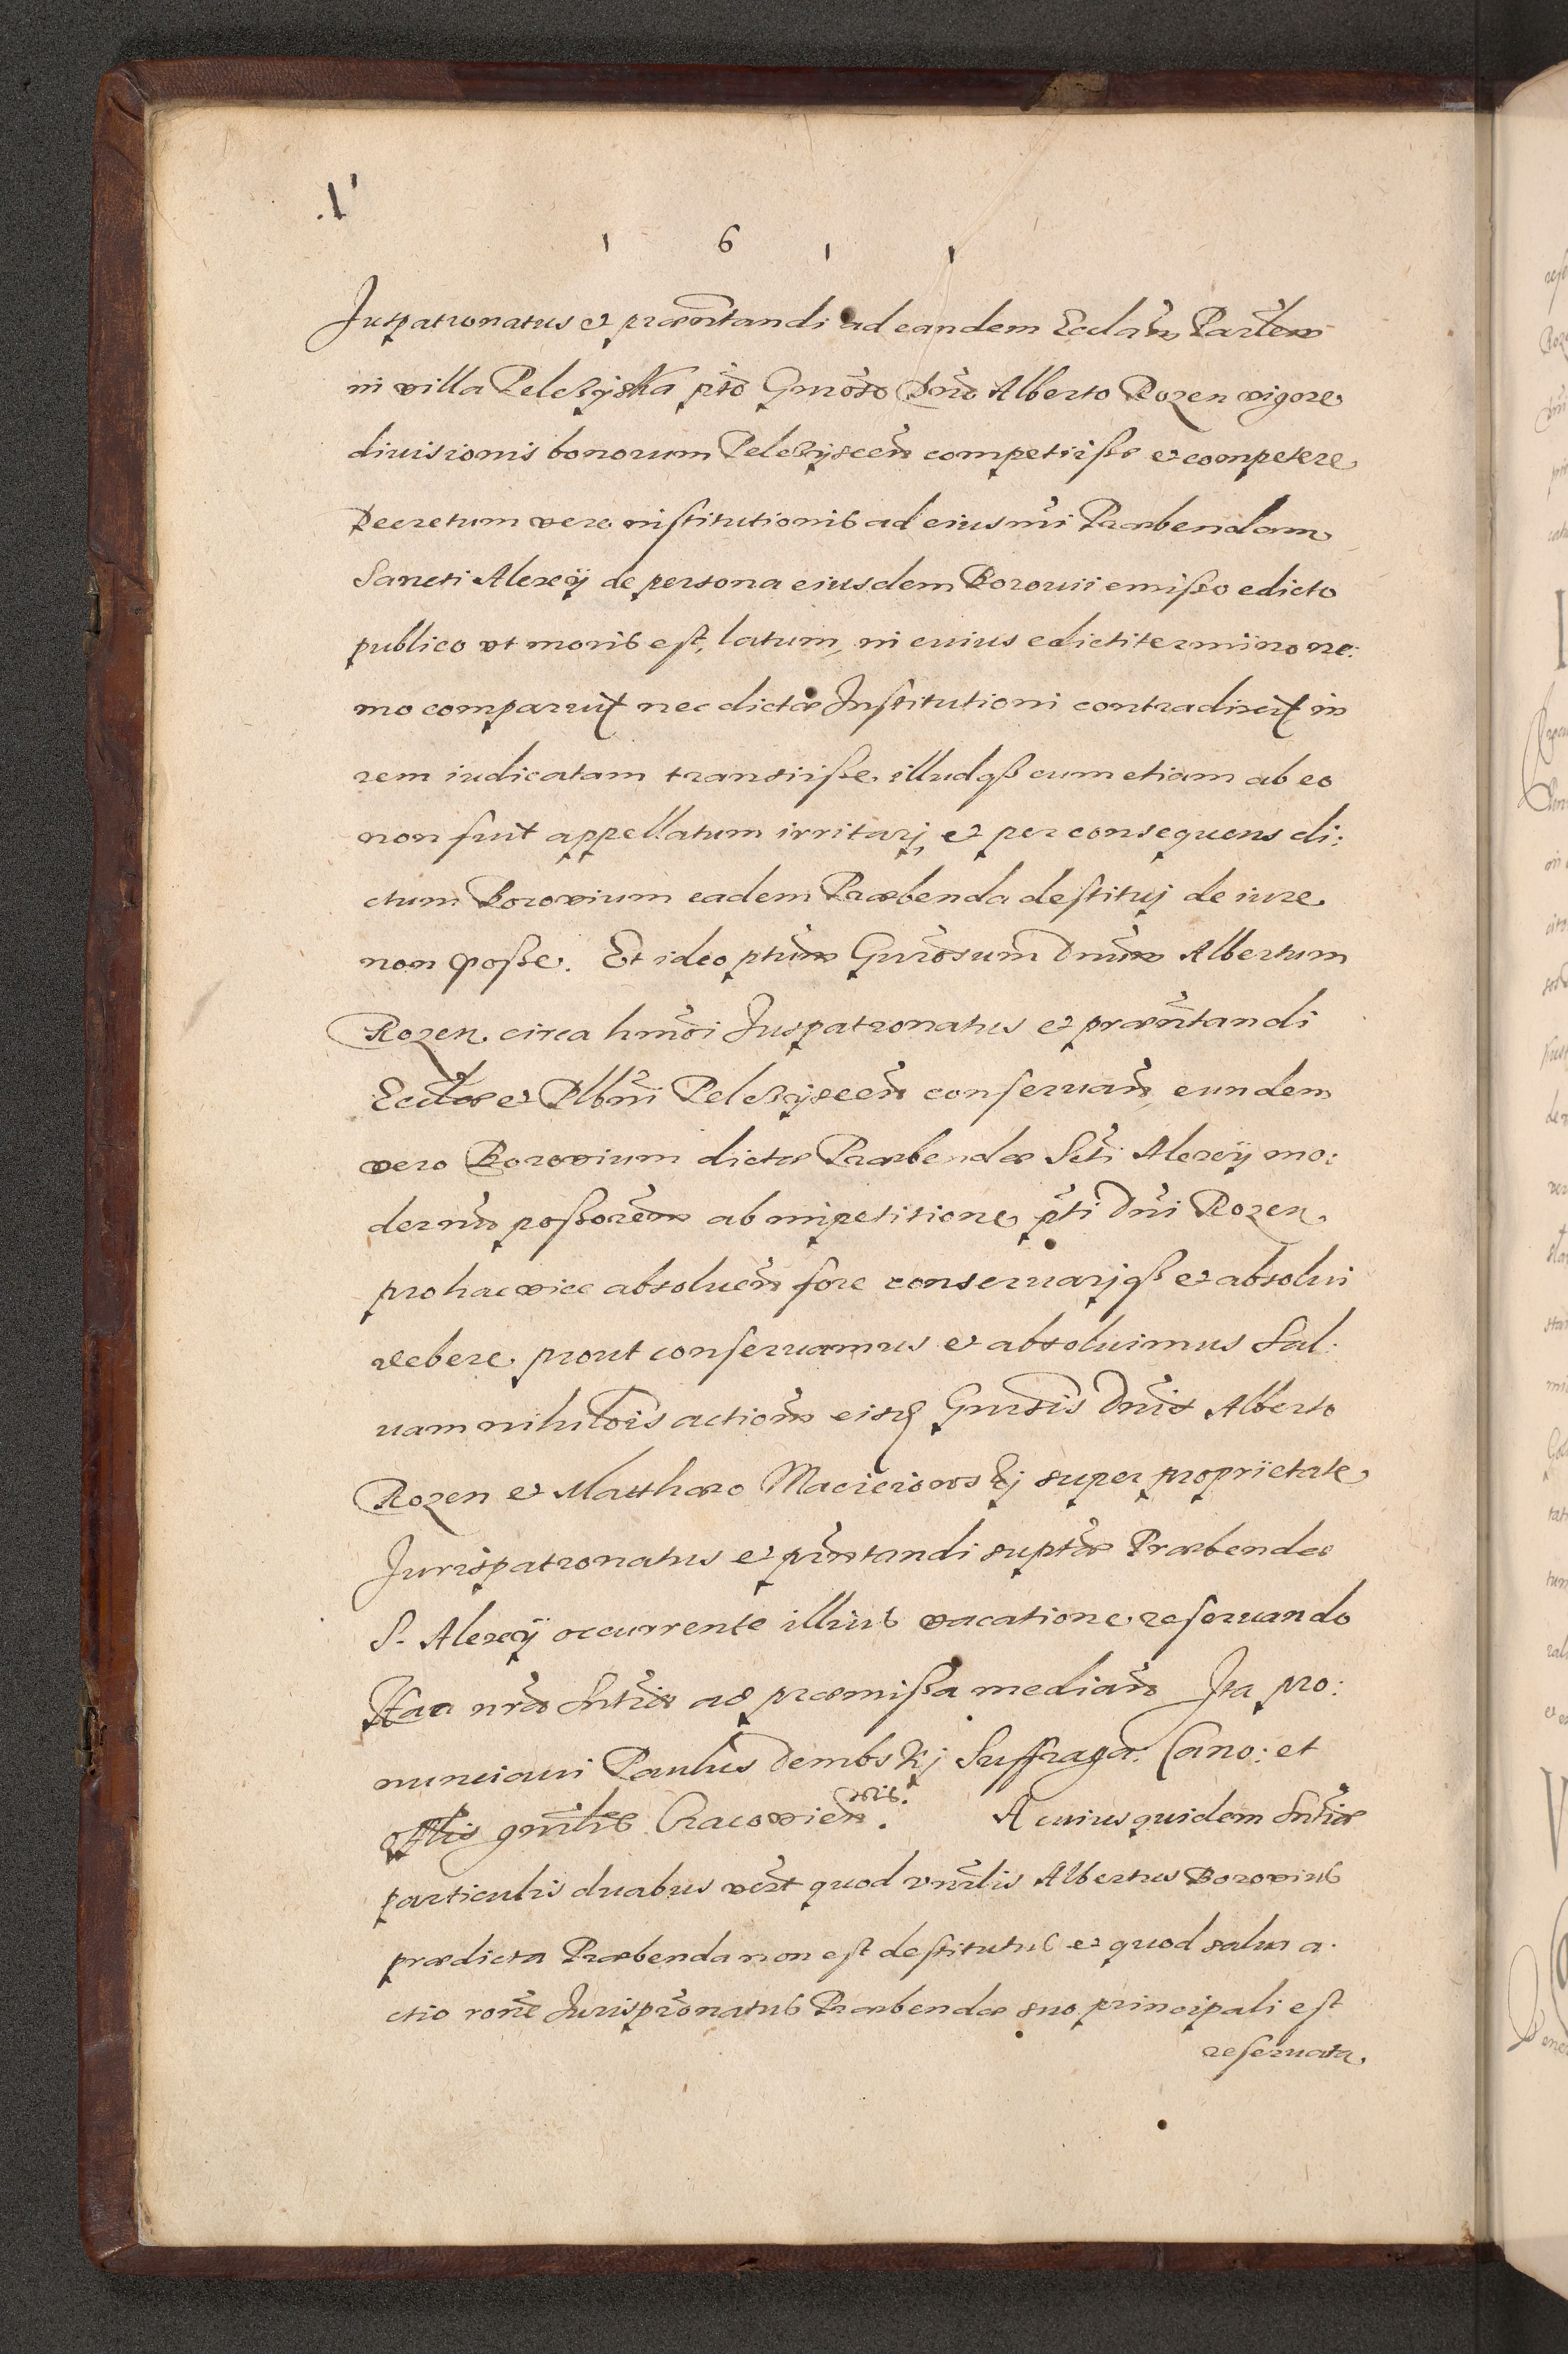 1 6 1 1
Juspatronatus et præntandi ad eandem Eccłam Parłem
in villa Pelczyska pto Gnroso Dno Alberto Rozen vigore
diuisionis bonorum Pelczyscen competiisse et competere
Decretum vero institutionis ad eiusmi Præbendam
Sancti Alexij de persona eiusdem Borouii emisso edicto
publico vt moris est, latum, in cuius edicti termino ne:
mo comparuit nec dictæ Institutioni contradixit in
rem iudicatam transiisse illudqß cum etiam ab eo
non fuit appellatum irritarj, et per consequens di:
ctum Borouium eadem Præbenda destituj de iure
non posse. Et ideo ptum Gnrosum Dnum Albertum
Rozen circa hmoi Juspatronatus et præntandi
Eccłæ et Plbni Pelczyscen conseruan, eundem
vero Borouium dictæ Præbendæ Scti Alexij mo:
dernu possorem ab impetitione pti Dni Rozen
pro hac vice absoluen fore conseruarjqß et absolui
debere prout conseruamus et absoluimus Sal:
uam nihilois actionem eisd Gnrosis Dnis Alberto
Rozen et Matthæo Macieiowskj super proprietate
Jurispatronatus et pñtandi suptæ Præbendæ
S. Alexij occurrente illius vacatione reseruando
Hac nra Sntia ad præmissa median Ita pro:
nunciaui Paulus Dembskj Suffraga: Cano: et
Offlis gnrlis Cracovien. A cuius quidem Sntiæ
particulis duabus vert quod vnrlis Albertus Borouius
prædicta Præbenda non est destitutus et quod salua a:
ctio rone Jurispronatus Præbendæ suo principali est
reseruata.